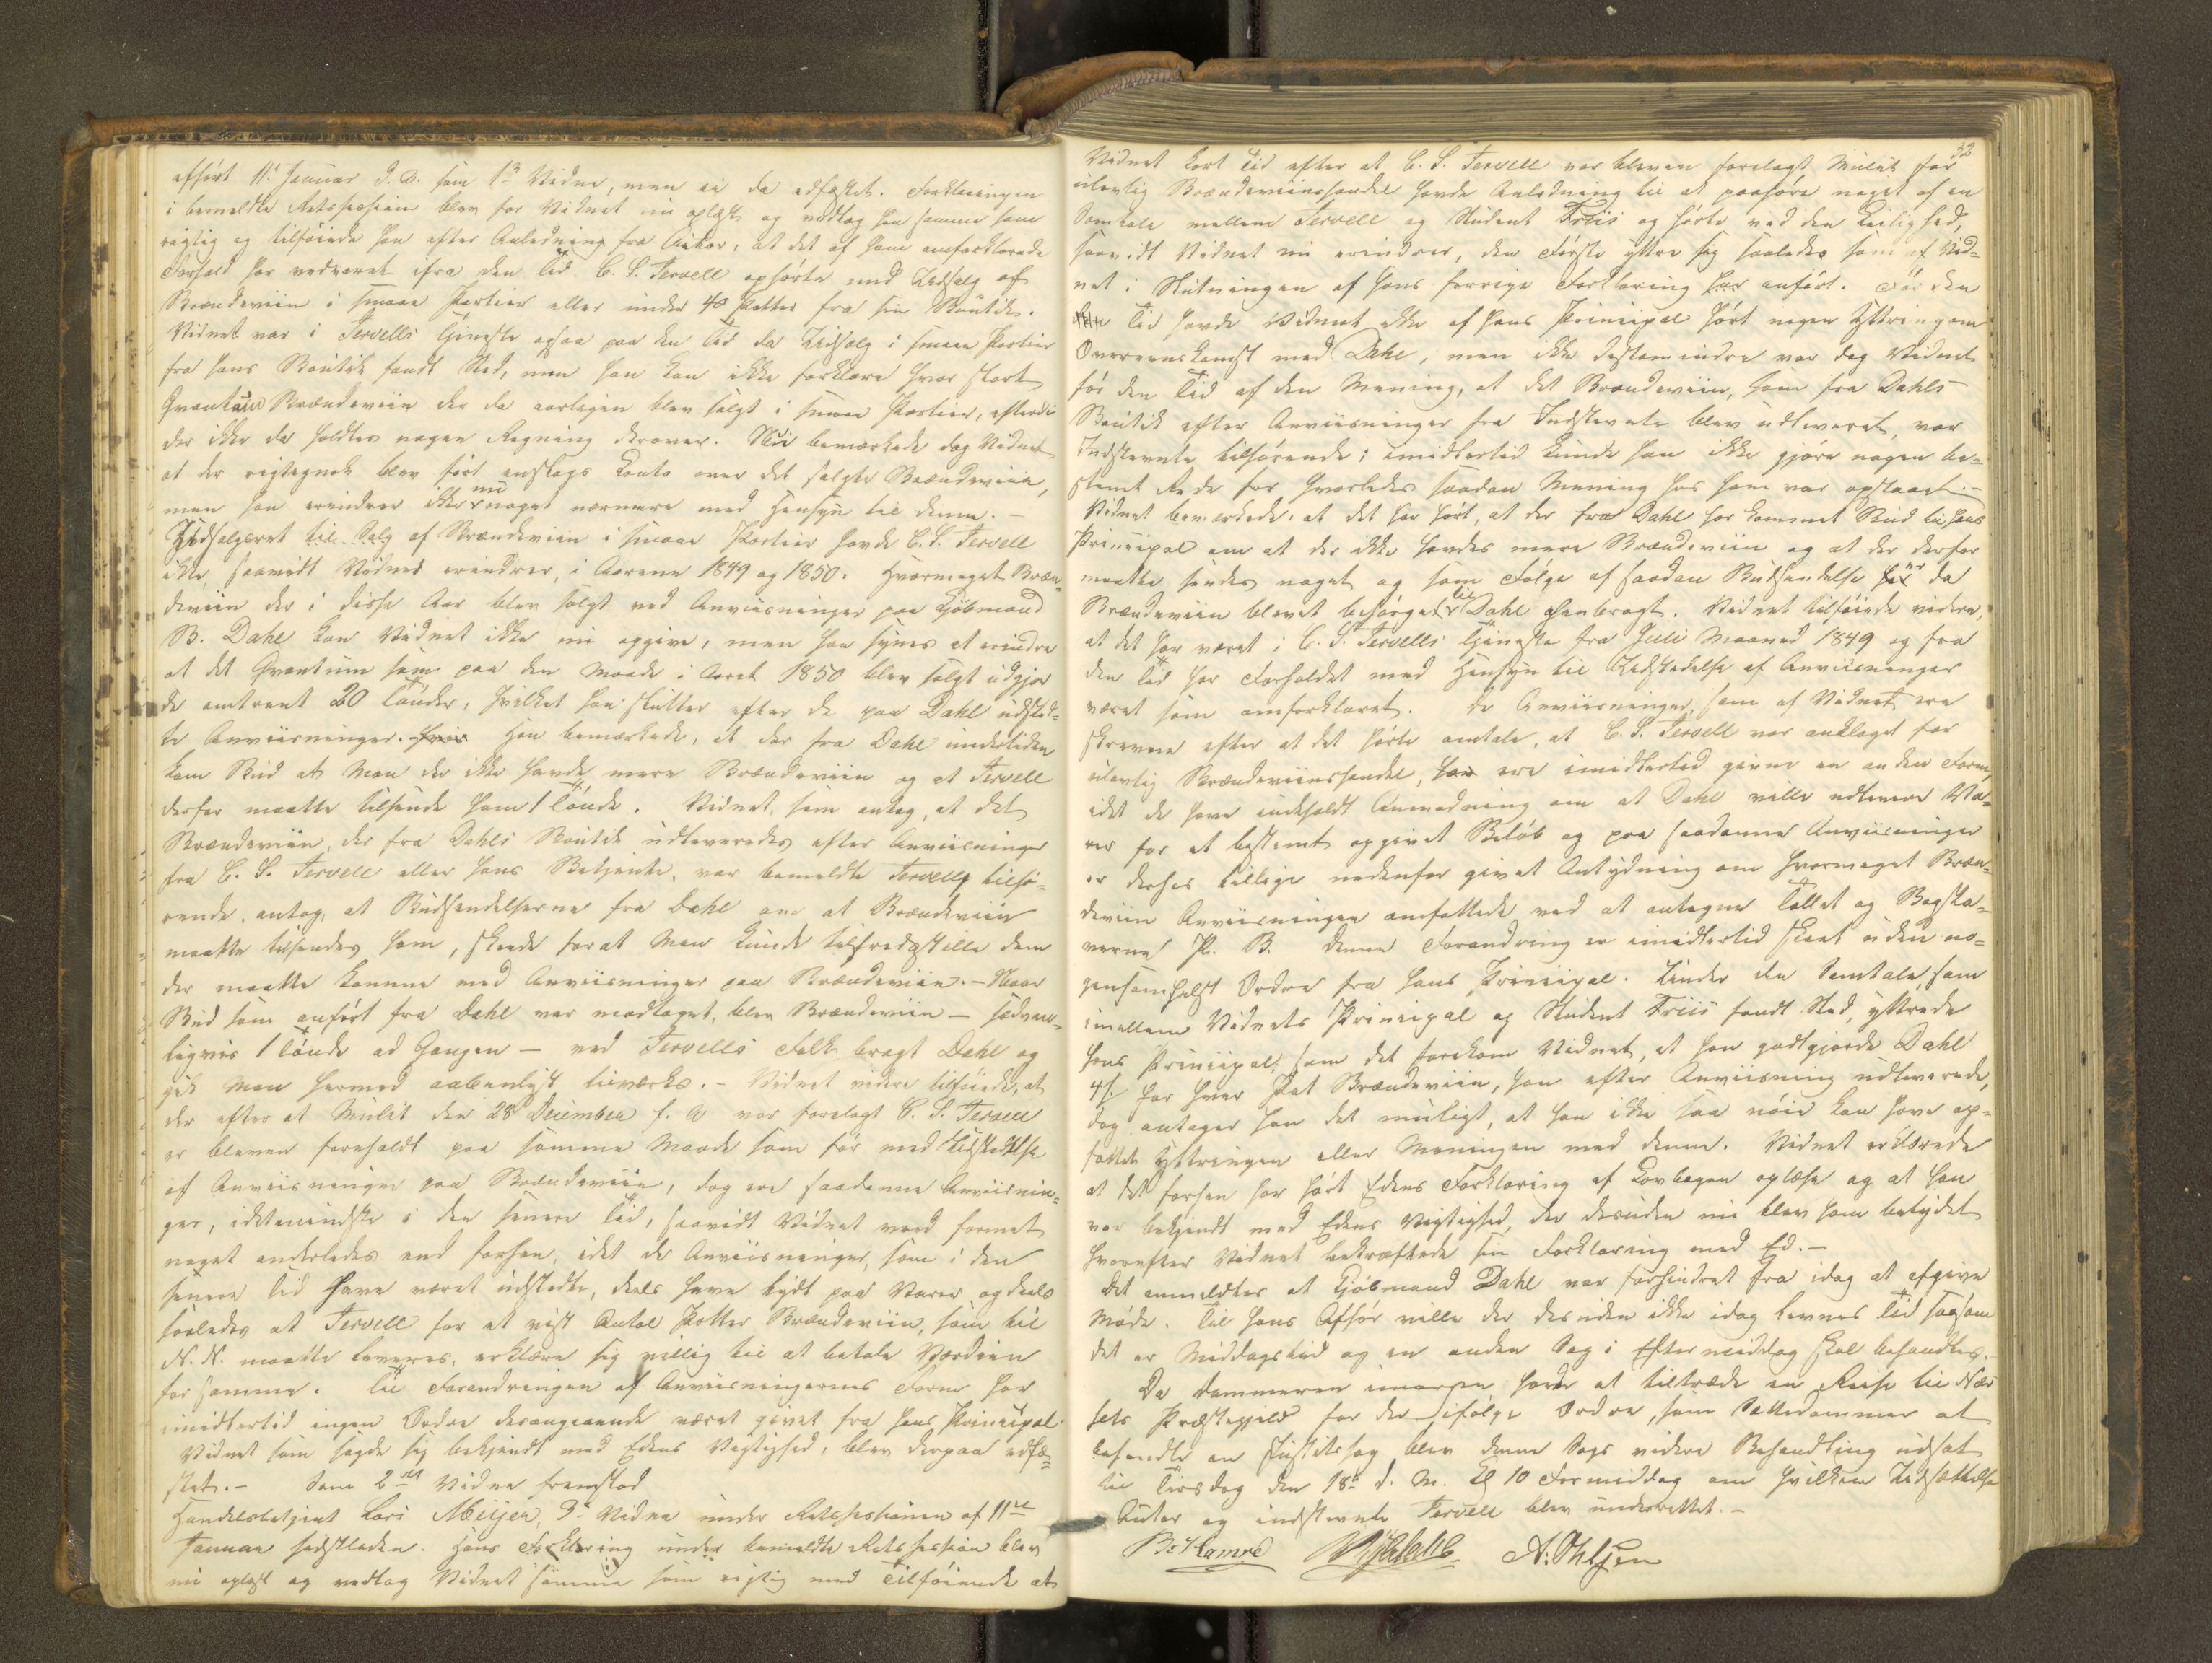 afhørt 11te Januar d. A. som 1ste Vidne, men ei da edfæstet. Forklaringen
i bemeldte Retssession blev for Vidnet nu oplæst og vedtog han samme som
rigtig og tilføiede han efter Anledning fra Actor, at det af ham omforklarede
Forhold har vedvaret ifra den Tid C. S. Tervell ophørte med Udsalg af
Brændeviin i smaae Partier eller under 40 Potter fra sin Boutik.
Vidnet var i Tervells Tjeneste ogsaa paa den Tid da Udsalg i smaae Partier
fra hans Boutik fandt Sted, men han kan ikke forklare hvor stort
Qvantum Brændeviin der da aarligen blev solgt i smaae Partier, efterdi
der ikke da holdtes nogen Regning derover. Nu bemærkede dog Vidnet
at der rigtignok blev ført enslags Conto over det solgte Brændeviin,
men han erindrer ikke nu noget nærmere med Hensyn til denne. –
Udsalgsret til Salg af Brændeviin i smaae Partier havde C. S. Tervell
ikke, saavidt Vidnet erindrer, i Aarene 1849 og 1850. Hvormeget Bræn-
deviin der i disse Aar blev solgt ved Anviisninger paa Kjøbmand
B. Dahl kan Vidnet ikke nu opgive, men han synes at erindre
at det Qvantum som paa den Maade i Aaret 1850 blev solgt udgjor
de omtrent 20 Tønder, hvilket han slutter efter de paa Dahl udsted-
te Anviisninger. Han bemærkede, at der fra Dahl undertiden
kom Bud at Man der ikke havde mere Brændeviin og at Tervell
derfor maatte tilsende ham 1 Tønde. Vidnet, som antog, at det
Brændeviin, der fra Dahls Boutik udleveredes efter Anviisninger
fra C. S. Tervell eller hans Betjente, var bemeldte Tervell tilhø-
rende, antog, at Budsendelserne fra Dahl om at Brændeviin
maatte tilsendes ham, skeede forat Man kunde tilfredsstille dem
der maatte komme med Anviisninger paa Brændeviin. – Naar
Bud som anført fra Dahl var modtaget, blev Brændeviin – sædvan-
ligviis 1 Tønde ad Gangen – ved Tervells Folk bragt Dahl og
gik Man hermed aabenlyst tilværks. – Vidnet videre tilføiede, at
der efter at Mulct den 28 December f. A. var forelagt C. S. Tervell
er bleven forholdt paa samme Maade som før med Udstedelse
af Anviisninger paa Brændeviin, dog ere saadanne Anviisnin-
ger, idetmindste i den senere Tid, saavidt Vidnet veed formet
noget anderledes end forhen, idet de Anviisninger, som i den
senere Tid have været udstedte, deels have lydt paa Varer og deels
saaledes at Tervell for et vist Antal Potter Brændeviin, som til
N. N. maatte leveres, erklære sig villig til at betale Værdien
for samme. Til Forandringen af Anviisningernes Form har
imidlertid ingen Ordre desangaaende været givet fra hans Principal.
Vidnet som sagde sig bekjendt med Edens Vigtighed, blev derpaa edfæ-
stet. – Som 2det Vidne fremstod
Handelsbetjent Lars Meijer, 3die Vidne under Retssessionen af 11te
Januar sidstleden. Hans Forklaring under bemeldte Retssession blev
nu oplæst og vedtog Vidnet samme som rigtig med Tilføiende at
32.
Vidnet kort Tid efter at C. S. Tervell var bleven forelagt Mulct for
ulovlig Brændeviinshandel havde Anledning til at paahøre noget af en
Samtale mellem Tervell og Student Friis og hørte ved den Leilighed,
saavidt Vidnet nu erindrer, den Første yttre sig saaledes som af Vid-
net i Slutningen af hans forrige Forklaring har anført. Før den
Tid havde Vidnet ikke af hans Principal hørt nogen Yttring om
Overeenskomst med Dahl, men ikke destomindre var dog Vidnet
før den Tid af den Mening, at det Brændeviin, som fra Dahls
Boutik efter Anviisninger fra Indstevnte blev udleveret, var
Indstevnte tilhørende; imidlertid kunde han ikke gjøre nogen be-
stemt Rede for hvorledes saadan Mening hos ham var opstaaet. –
Vidnet bemærkede, at det har hørt, at der fra Dahl har kommet Bud til hans
Principal om at der ikke havdes mere Brændeviin og at der derfor
maatte sendes noget og som Følge af saadan Budsendelse er da
Brændeviin blevet besørget til Dahl henbragt. Vidnet tilføiede videre,
at det har været i C. S. Tervells Tjeneste fra Juli Maaned 1849 og fra
den Tid har Forholdet med Hensyn til Udstedelse af Anviisninger
været som omforklaret. De Anviisninger, som af Vidnet ere
skrevne efter at det hørte omtale, at C. S. Tervell var anklaget for
ulovlig Brændeviinshandel, ere imidlertid givne en anden Form,
idet de have indeholdt Anmodning om at Dahl ville udlevere Va-
rer for et bestemt opgivet Beløb og paa saadanne Anviisninger
er derhos tillige nedenfor givet Antydning om hvormeget Bræn-
deviin Anviisningen omfattede ved at antegne Tallet og Bogsta-
verne P. B. Denne Forandring er imidlertid skeet uden no-
gensomhelst Ordre fra hans Principal. Under den Samtale, som
imellem Vidnets Principal og Student Friis fandt Sted, yttrede
hans Principal, som det forekom Vidnet, at han godtgjorde Dahl
4 ß for hver Pot Brændeviin, han efter Anviisning udleverede,
dog antager han det muligt, at han ikke saa nøie kan have op-
fattet Yttringen eller Meningen med denne. Vidnet erklærede
at det forhen har hørt Edens Forklaring af Lovbogen oplæse og at han
var bekjendt med Edens Vigtighed, der desuden nu blev ham betydet
hvorefter Vidnet bekræftede sin Forklaring med Ed. –
Det anmeldtes at Kjøbmand Dahl var forhindret fra idag at afgive
Møde. Til hans Afhør ville der desuden ikke idag levnes Tid saasom
det er Middagstid og en anden Sag i Eftermiddag skal behandles.
Da Dommeren imorgen havde at tiltræde en Reise til Næs
sets Præstegjeld for der ifølge Ordre, som Sættedommer at
behandle en Justitssag blev denne Sags videre Behandling udsat
til Tirsdag den 18de d. M. Kl 10 Formiddag om hvilken Udsættelse
Actor og indstevnte Tervell blev underrettet. –
B. Hamre A. Ohlsen